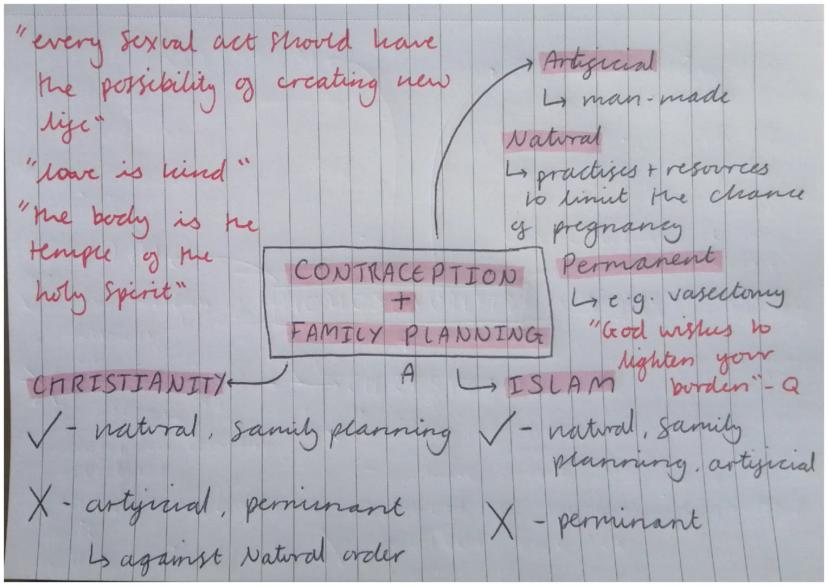 "every sexual act should have
the possibility of creating new
life"
"love is kind"
"the body is the
temple of the
holy spirit"
Artificial
↳ man-made
Natural
↳ practises + resources
to limit the chance
of pregnancy
Permanent
↳ e.g. vasectomy
"God wishes to
lighten your
burden" - Q
CONTRACEPTION
+
FAMILY PLANNING
A
CHRISTIANITY
✓ - natural, family planning
X - artificial, perminant
↳ against Natural order
ISLAM
✓ - natural, family
planning, artificial
X - perminant